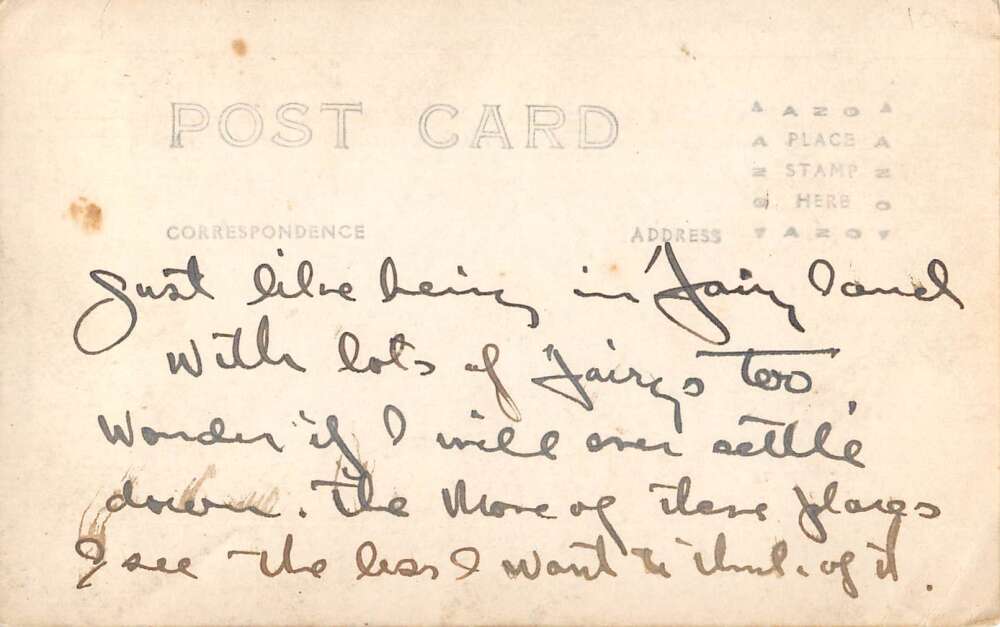 POST CARD
AZO
PLACE
STAMP
HERE
AZO
CORRESPONDENCE ADDRESS
Just like being in Fairy land
With lots of Fairys too
Wonder if I will ever settle
down. The More of these places
I see the less I want to think of it.